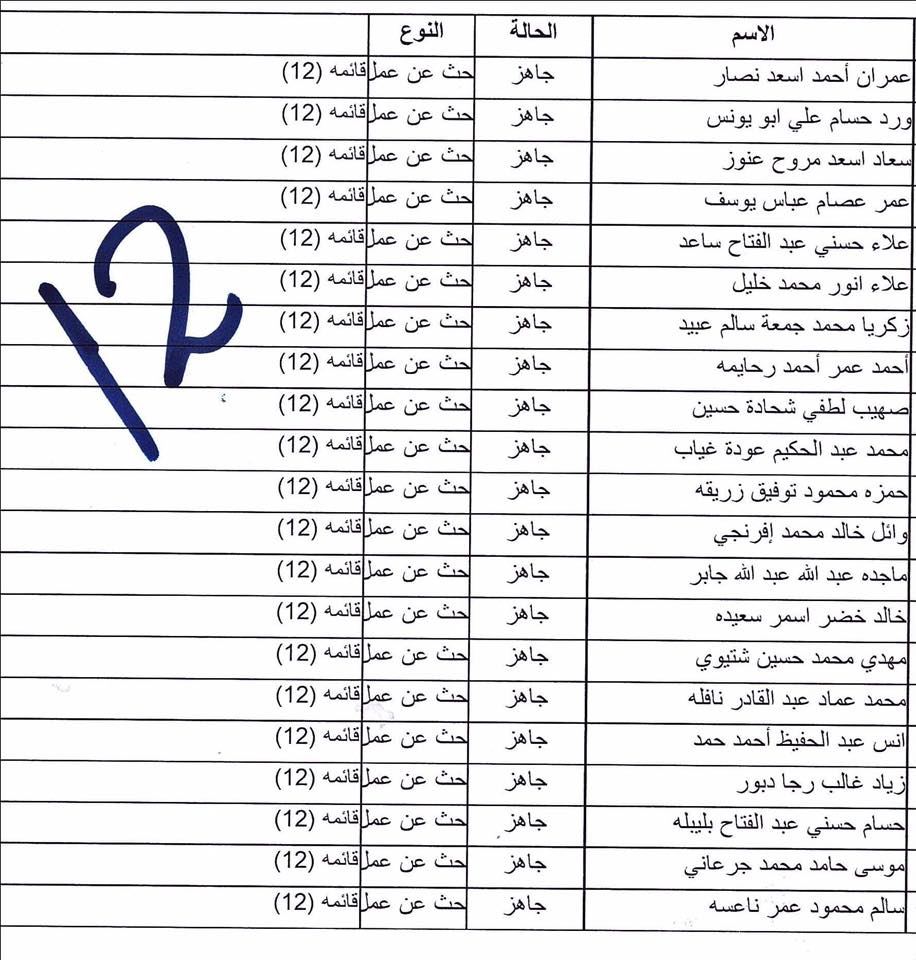 الاسم الحالة النوع
عمران أحمد اسعد نصار جاهز حث عن عمل قائمه (12)
ورد حسام علي ابو يونس جاهز حث عن عمل قائمه (12)
سعاد اسعد مروح عنوز جاهز حث عن عمل قائمه (12)
عمر عصام عباس يوسف جاهز حث عن عمل قائمه (12)
علاء حسني عبد الفتاح ساعد جاهز حث عن عمل قائمه (12)
علاء انور محمد خليل جاهز حث عن عمل قائمه (12)
زكريا محمد جمعة سالم عبيد جاهز حث عن عمل قائمه (12)
أحمد عمر أحمد رحايمه جاهز حث عن عمل قائمه (12)
صهيب لطفي شحادة حسين جاهز حث عن عمل قائمه (12)
محمد عبد الحكيم عودة غياب جاهز حث عن عمل قائمه (12)
حمزه محمود توفيق زريقه جاهز حث عن عمل قائمه (12)
وائل خالد محمد إفرنجي جاهز حث عن عمل قائمه (12)
ماجده عبد الله عبد الله جابر جاهز حث عن عمل قائمه (12)
خالد خضر اسمر سعيده جاهز حث عن عمل قائمه (12)
مهدي محمد حسين شتيوي جاهز حث عن عمل قائمه (12)
محمد عماد عبد القادر نافله جاهز حث عن عمل قائمه (12)
انس عبد الحفيظ أحمد حمد جاهز حث عن عمل قائمه (12)
زياد غالب رجا دبور جاهز حث عن عمل قائمه (12)
حسام حسني عبد الفتاح بليبله جاهز حث عن عمل قائمه (12)
موسى حامد محمد جرعاني جاهز حث عن عمل قائمه (12)
سالم محمود عمر ناعسه جاهز حث عن عمل قائمه (12)
12